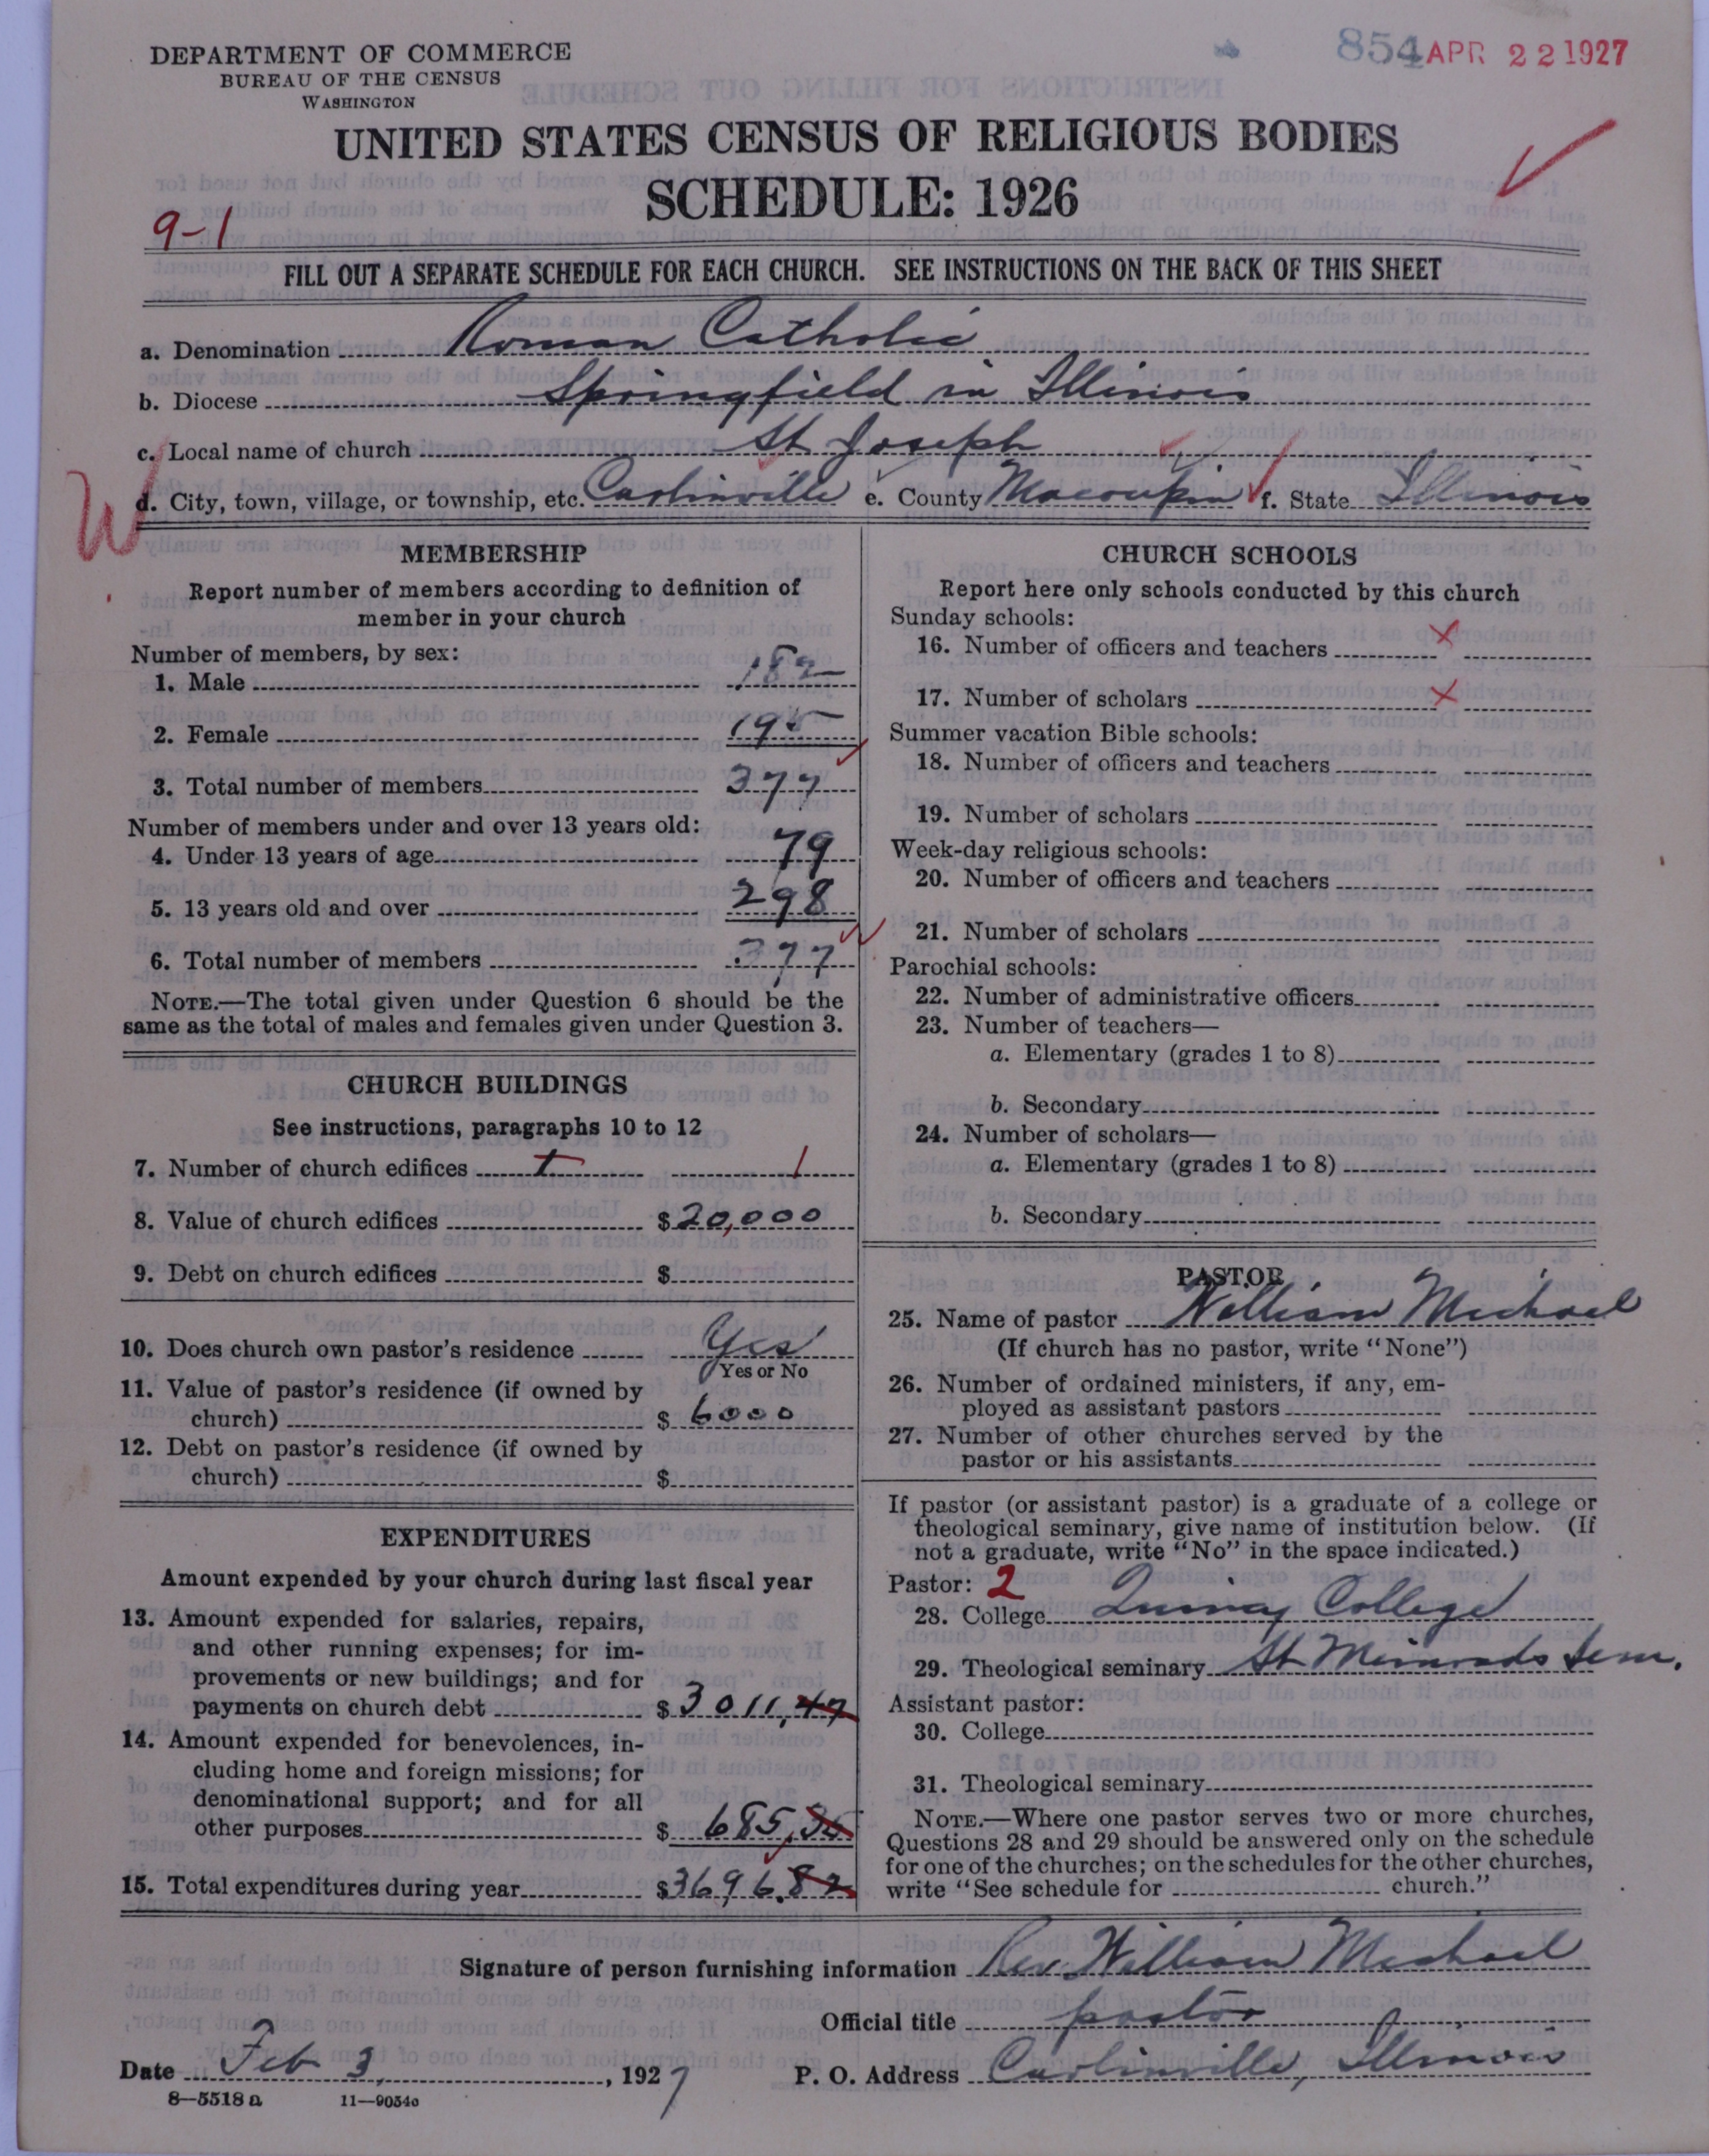 DEPARTMENT OF COMMERCE
BUREAU OF THE CENSUS
WASHINGTON
854 APR 22 1927
UNITED STATES CENSUS OF RELIGIOUS BODIES
SCHEDULE: 1926
9-1
FILL OUT A SEPARATE SCHEDULE FOR EACH CHURCH. SEE INSTRUCTIONS ON THE BACK OF THIS SHEET
a. Denomination Roman Catholic
b. Diocese Springfield in Illinois
c. Local name of church St Joseph
W
d. City, town, village, or township, etc. Carlinville e. County Macoupin f. State Illinois
MEMBERSHIP
Report number of members according to definition of
member in your church
Number of members, by sex:
1. Male 182
2. Female 195
3. Total number of members 377
Number of members under and over 13 years old:
4. Under 13 years of age 79
5. 13 years old and over 298
6. Total number of members 377
NOTE.—The total given under Question 6 should be the
same as the total of males and females given under Question 3.
CHURCH BUILDINGS
See instructions, paragraphs 10 to 12
7. Number of church edifices 1 1
8. Value of church edifices $20,000
9. Debt on church edifices $
10. Does church own pastor's residence Yes
Yes or No
11. Value of pastor's residence (if owned by
church) $6000
12. Debt on pastor's residence (if owned by
church) $
EXPENDITURES
Amount expended by your church during last fiscal year
13. Amount expended for salaries, repairs,
and other running expenses; for im-
provements or new buildings; and for
payments on church debt $3011,47
14. Amount expended for benevolences, in-
cluding home and foreign missions; for
denominational support; and for all
other purposes $685,35
15. Total expenditures during year $3696.82
CHURCH SCHOOLS
Report here only schools conducted by this church
Sunday schools:
16. Number of officers and teachers x
17. Number of scholars x
Summer vacation Bible schools:
18. Number of officers and teachers
19. Number of scholars
Week-day religious schools:
20. Number of officers and teachers
21. Number of scholars
Parochial schools:
22. Number of administrative officers
23. Number of teachers—
a. Elementary (grades 1 to 8)
b. Secondary
24. Number of scholars—
a. Elementary (grades 1 to 8)
b. Secondary
PASTOR
25. Name of pastor William Michael
(If church has no pastor, write "None")
26. Number of ordained ministers, if any, em-
ployed as assistant pastors
27. Number of other churches served by the
pastor or his assistants
If pastor (or assistant pastor) is a graduate of a college or
theological seminary, give name of institution below. (If
not a graduate, write "No" in the space indicated.)
Pastor: 2
28. College Quincy College
29. Theological seminary St Meinrads Sem.
Assistant pastor:
30. College
31. Theological seminary
NOTE.—Where one pastor serves two or more churches,
Questions 28 and 29 should be answered only on the schedule
for one of the churches; on the schedules for the other churches,
write "See schedule for church."
Signature of person furnishing information Rev. William Michael
Official title pastor
Date Feb 3, 1927 P. O. Address Carlinville, Illinois
8—5518 a 11—9054o